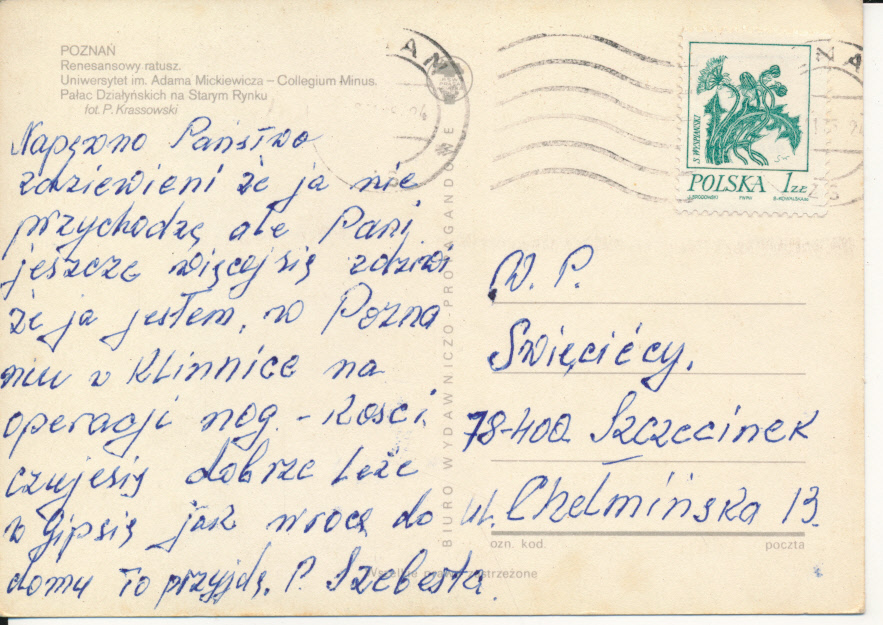 POZNAŃ
Renesansowy ratusz.
Uniwersytet im. Adama Mickiewicza – Collegium Minus.
Pałac Działyńskich na Starym Rynku
fot. P. Krassowski
Napęwno Państwo
zdziewieni że ja nie
przychodzę ale Pani
jeszczę więcejsię zdziwi
że ja jestem, w Pozna
niu w Klinnice na
operacji nog. - Kosci
czujesię dobrze Leże
w gipsię jak wrocę do
domu to przyjdę. P. Szebesta.
BIURO WYDAWNICZO-PROPAGANDOWE
S. WYSPIAŃSKI
POLSKA 1 ZŁ
PWPW
W. P.
Swięciécy.
78-400 Szczecinek
ul. Chełmińska 13.
ozn. kod.
poczta
zastrzeżone